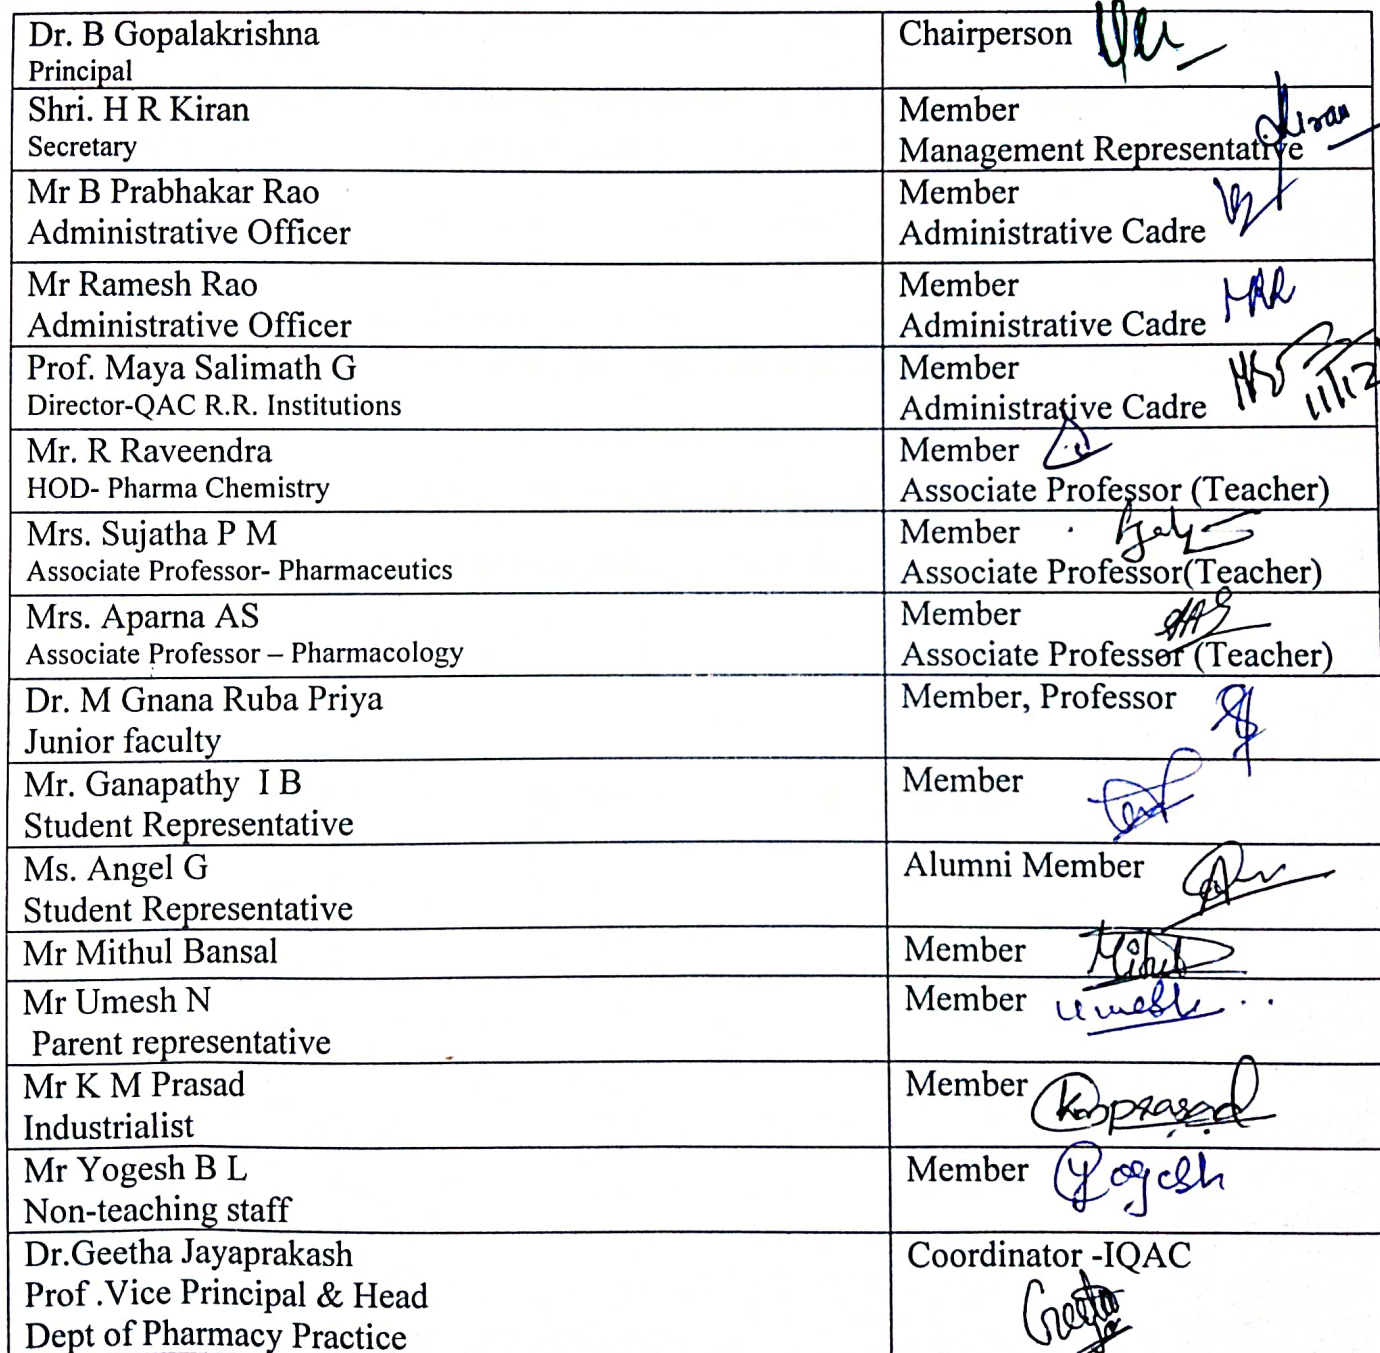 Dr. B Gopalakrishna
Principal
Chairperson
Shri. H R Kiran
Secretary
Member
Management Representative
Kiran
Mr B Prabhakar Rao
Administrative Officer
Member
Administrative Cadre
Mr Ramesh Rao
Administrative Officer
Member
Administrative Cadre
Prof. Maya Salimath G
Director-QAC R.R. Institutions
Member
Administrative Cadre
11/12
Mr. R Raveendra
HOD- Pharma Chemistry
Member
Associate Professor (Teacher)
Mrs. Sujatha P M
Associate Professor- Pharmaceutics
Member
Associate Professor(Teacher)
Mrs. Aparna AS
Associate Professor – Pharmacology
Member
Associate Professor (Teacher)
Dr. M Gnana Ruba Priya
Junior faculty
Member, Professor
Mr. Ganapathy I B
Student Representative
Member
Ms. Angel G
Student Representative
Alumni Member
Mr Mithul Bansal
Member
Mr Umesh N
Parent representative
Member
Umesh
Mr K M Prasad
Industrialist
Member
KMprasad
Mr Yogesh B L
Non-teaching staff
Member
Yogesh
Dr.Geetha Jayaprakash
Prof .Vice Principal & Head
Dept of Pharmacy Practice
Coordinator -IQAC